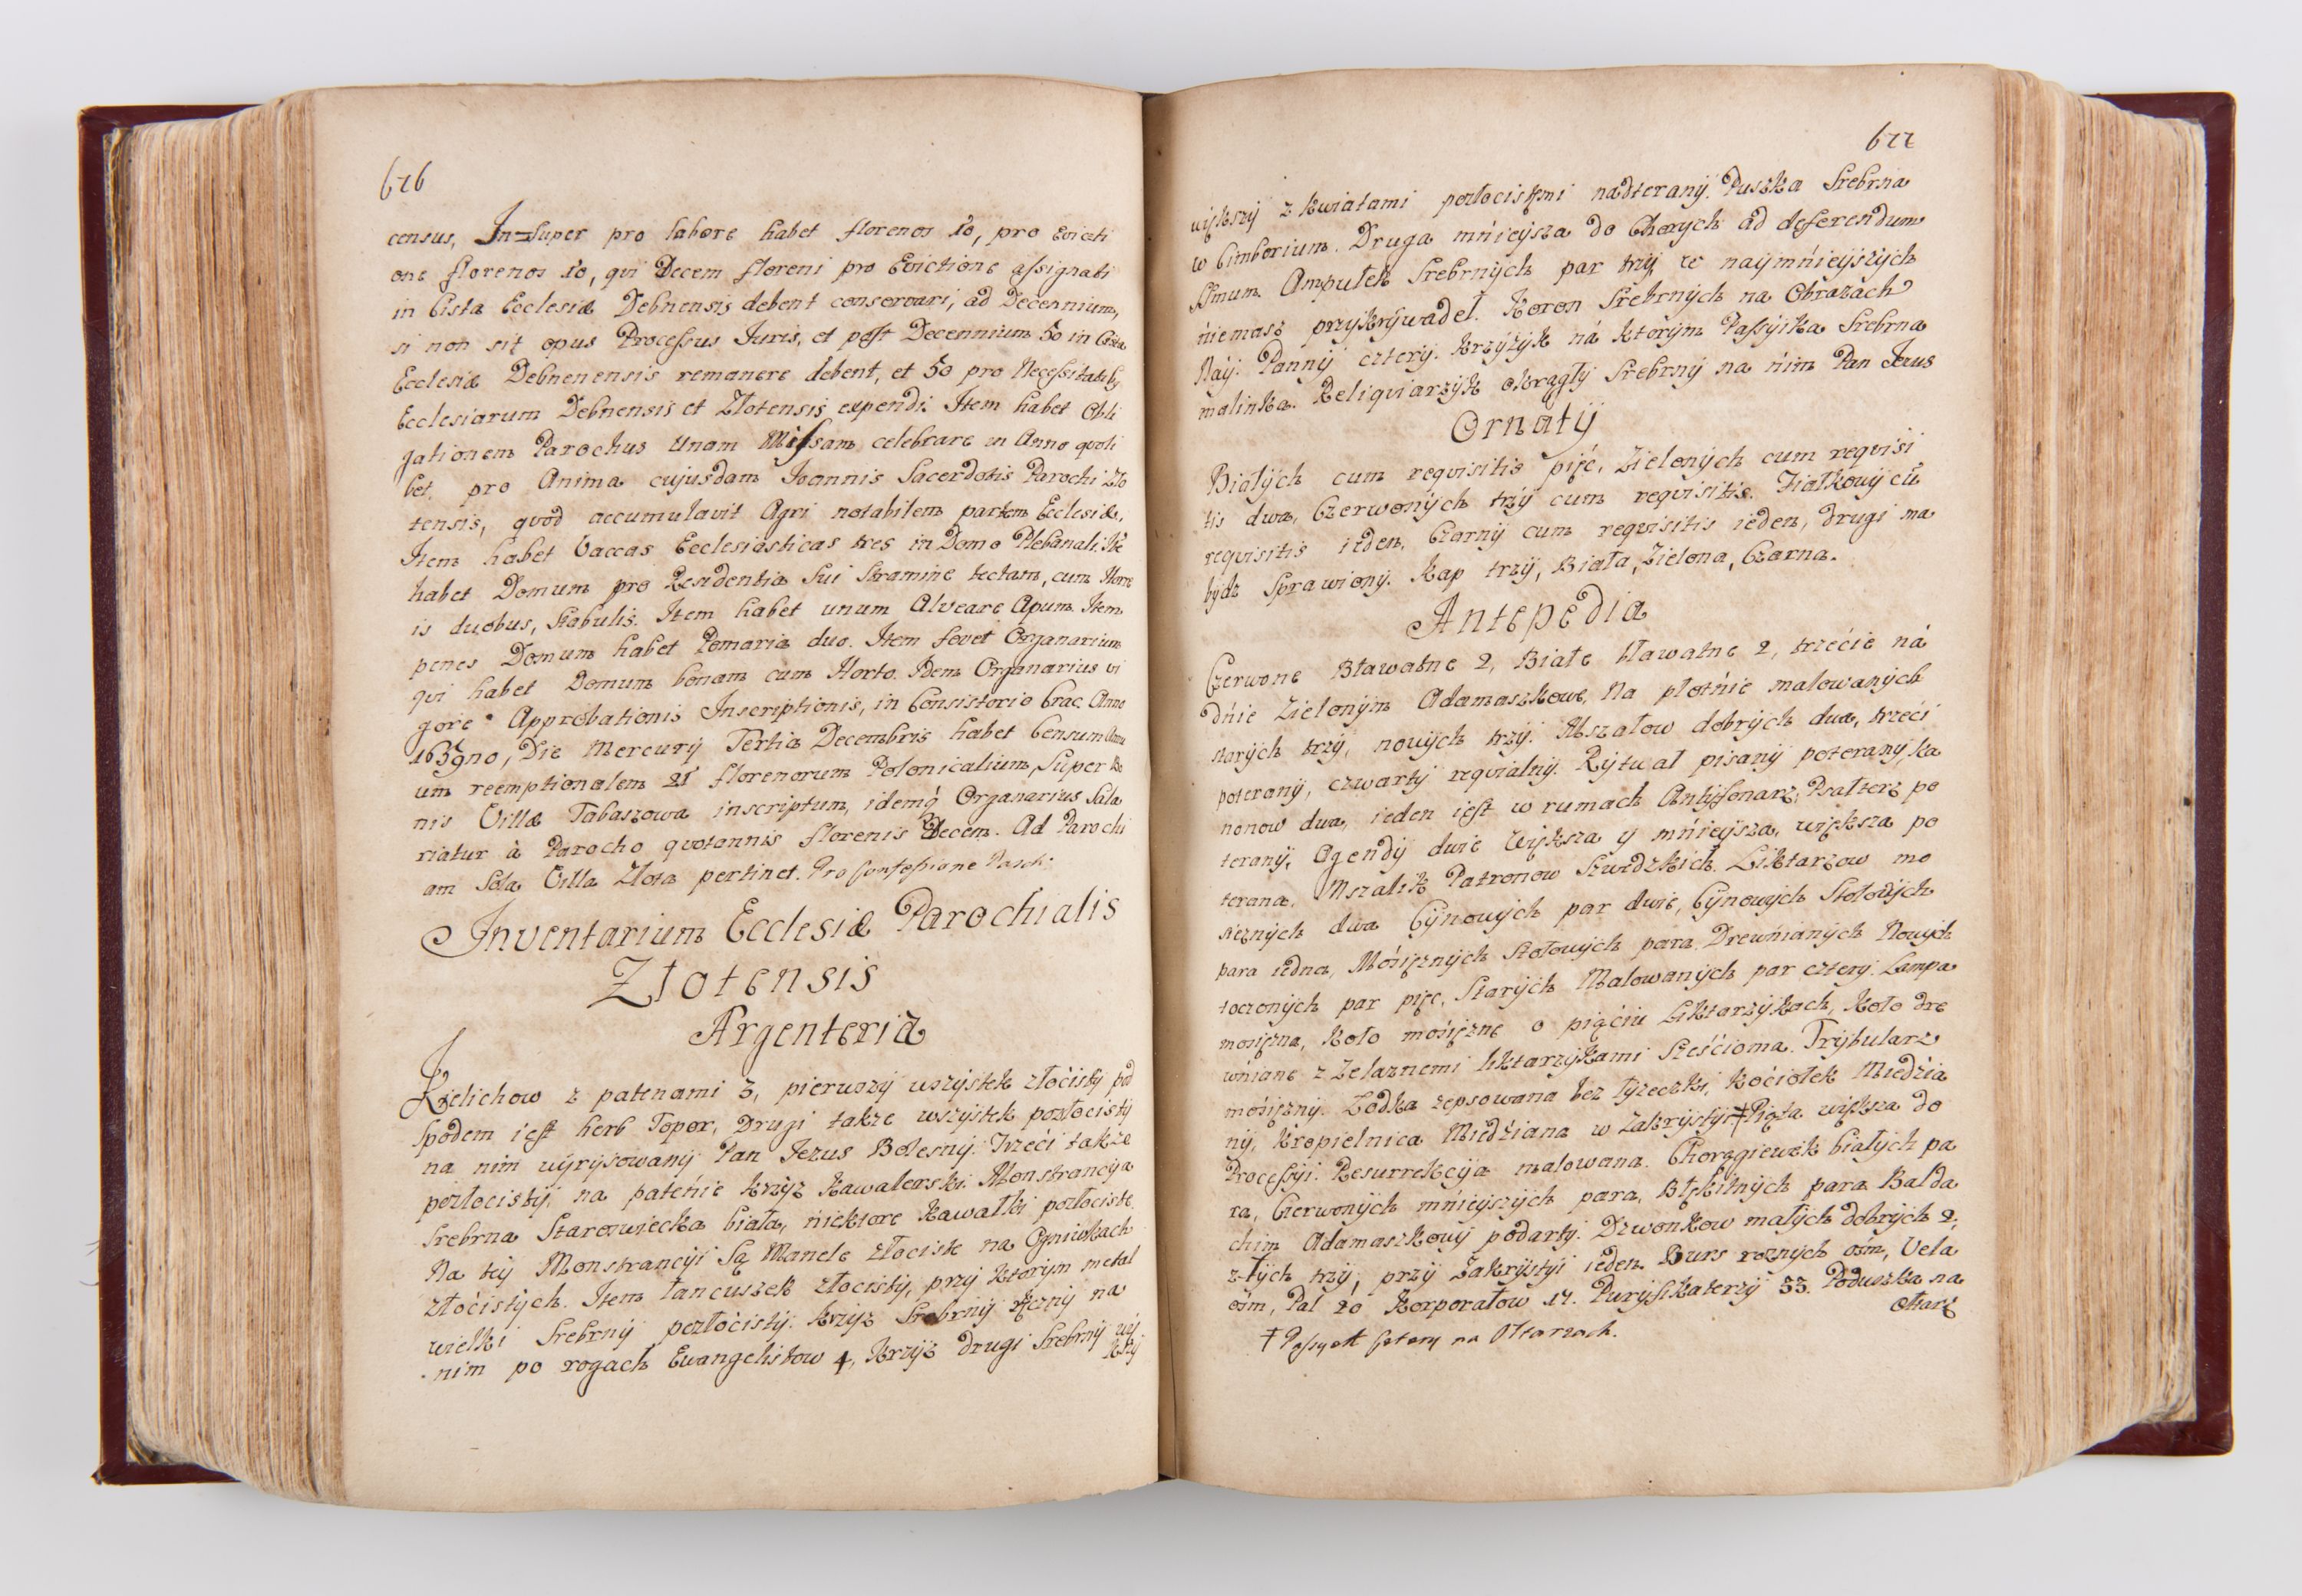 676
census, In-super pro labore habet florenos 10, pro Evicti
one florenos 10, qui Decem floreni pro Evictione assignati
in Cista Ecclesiæ Debnensis debent conservari, ad Decennium,
si non sit opus Processus Juris, et post Decennium 50 in Cista
Ecclesiæ Debnenensis remanere debent, et 50 pro Necessitatibꝫ
Ecclesiarum Debnensis et Złotensis expendi. Item habet Obli
gationem Parochus Unam Missam celebrare in Anno quoli
bet, pro Anima cujusdam Joannis Sacerdotis Parochi Zło
tensis, quod accumulavit Agri notabilem partem Ecclesiæ,
Item habet Vaccas Ecclesiasticas tres in Domo Plebanali. Itē
habet Domum pro Residentia Sui Stramine tectam, cum Horre
is duobus, Stabulis. Item habet unum Alveare Apum. Item
penes Domum habet Pomaria duo. Item fovet Organarium
qui habet Domum bonam cum Horto. Idem Organarius vi
gore Approbationis Inscriptionis, in Consistorio Crac. Anno
1639no, Die Mercurÿ Tertia Decembris habet Censum Annu
um reemptionalem 21 florenorum Polonicalium, Super Bo
nis Villæ Tabaszowa inscriptum, idemq́ Organarius Sala
riatur à Parocho quotannis florenis Decem. Ad Parochi
am Sola Villa Złota pertinet. Pro Confessione Pasch:
Inventarium Ecclesiæ Parochialis
Złotensis
Argenteria
Kielichow z patenami 3, pierwszÿ wszÿstek złócistÿ, pod
Spodem iest herb Topor, Drugi takze wszÿstek pozłocistÿ
na nim wÿrÿsowanÿ Pan Jezus Bolesnÿ. Trzeći także
pozłocistÿ, na pateńie krzÿz Kawalerski. Monstrancÿa
Srebrna Staroswiecka biała, niektore kawałki pozłociste
Na teÿ Monstrancÿi Są Manele złociste na Ogniwkach
złóćistÿch. Item łancuszek złocistÿ, przÿ ktorÿm metal
wielki Srebrnÿ pozłóćistÿ. Krzÿz Srebrnÿ ręcznÿ na
nim po rogach Ewangelistow 4, Krzÿż drugi Srebrnÿ wię
kszÿ
677
większÿ z kwiatami pozłocistemi nadteranÿ. Puszka Srebrna
w Cimborium. Druga mńieÿsza do Chorÿch ad deferendum
SSmum. Ampułek Srebrnÿch par trzÿ w naÿmńieÿszÿch
ńiemasz przÿkrÿwadeł. Koron Srebrnÿch na Obrazach
Náÿ: Pannÿ czterÿ. Krzÿżÿk ná ktorÿm Passÿika Srebrna
malinka. Reliqviarzÿk okrągłÿ Srebrnÿ na ńim Pan Jezus
Ornatÿ
Białÿch cum reqvisitis pięć, Zielonÿch cum reqvisi
tis dwa, Czerwonÿch trzÿ cum reqvisitis. Fiałkowÿ cū
reqvisitis ieden, Czarnÿ cum reqvisitis ieden, drugi ma
bÿdz Sprawionÿ. Kap trzÿ, Biała, Zielona, Czarna.
Antepedia
Czerwone Bławatne 2, Białe bławatne 2, trzećie ná
dńie Zielonÿm Adamaszkowe, Na płotńie malowanÿch
starÿch trzÿ, nowÿch trzÿ. Mszałow dobrÿch dwa, trzeći
poteranÿ, czwartÿ reqvialnÿ. Rÿtuał pisanÿ poteranÿ, ka
nonow dwa, ieden iest w rumach Antÿfonarz, Psałterz po
teranÿ, Agendÿ dwie większa ÿ mńieÿsza, większa po
terana, Mszalik Patronow Szwedzkich. Liktarzow mo
sieznÿch dwa Cÿnowÿch par dwie, Cÿnowÿch Stołowÿch
para iedna, Mósięznÿch stołowÿch para. Drewńianÿch Nowÿch
toczonÿch par pięc, Starÿch Malowanÿch par czterÿ. Lampa
mosięzna, Koło mosięzne o pięćiu Liktarzÿkach, Koło dre
wńiane z Zelaznemi liktarzÿkami Sześćioma. Trÿbularz
mósięznÿ. Łodka zepsowana bez łÿzeczki, Kociołek Miedźia
nÿ, Kropielnica Miedźiana w Zakrÿstÿi ‡ Pięta większa do
Processÿi. Resurrekcÿa malowana. Chorągiewek białÿch pa
ra, Czerwonÿch mńieÿszÿch para, Błękitnÿch para. Balda
chim Adamaszkowÿ podartÿ. Dzwonkow małÿch dobrÿch 2,
złÿch trzÿ, przÿ Zakrÿstÿi ieden. Burs roznÿch ośm, Vela
ośm, Pal 20 Korporałow 17. Purÿfikaterzÿ 33. Poduszka na
Ołtarz
‡ Passyek Cztery na Ołtarzach.